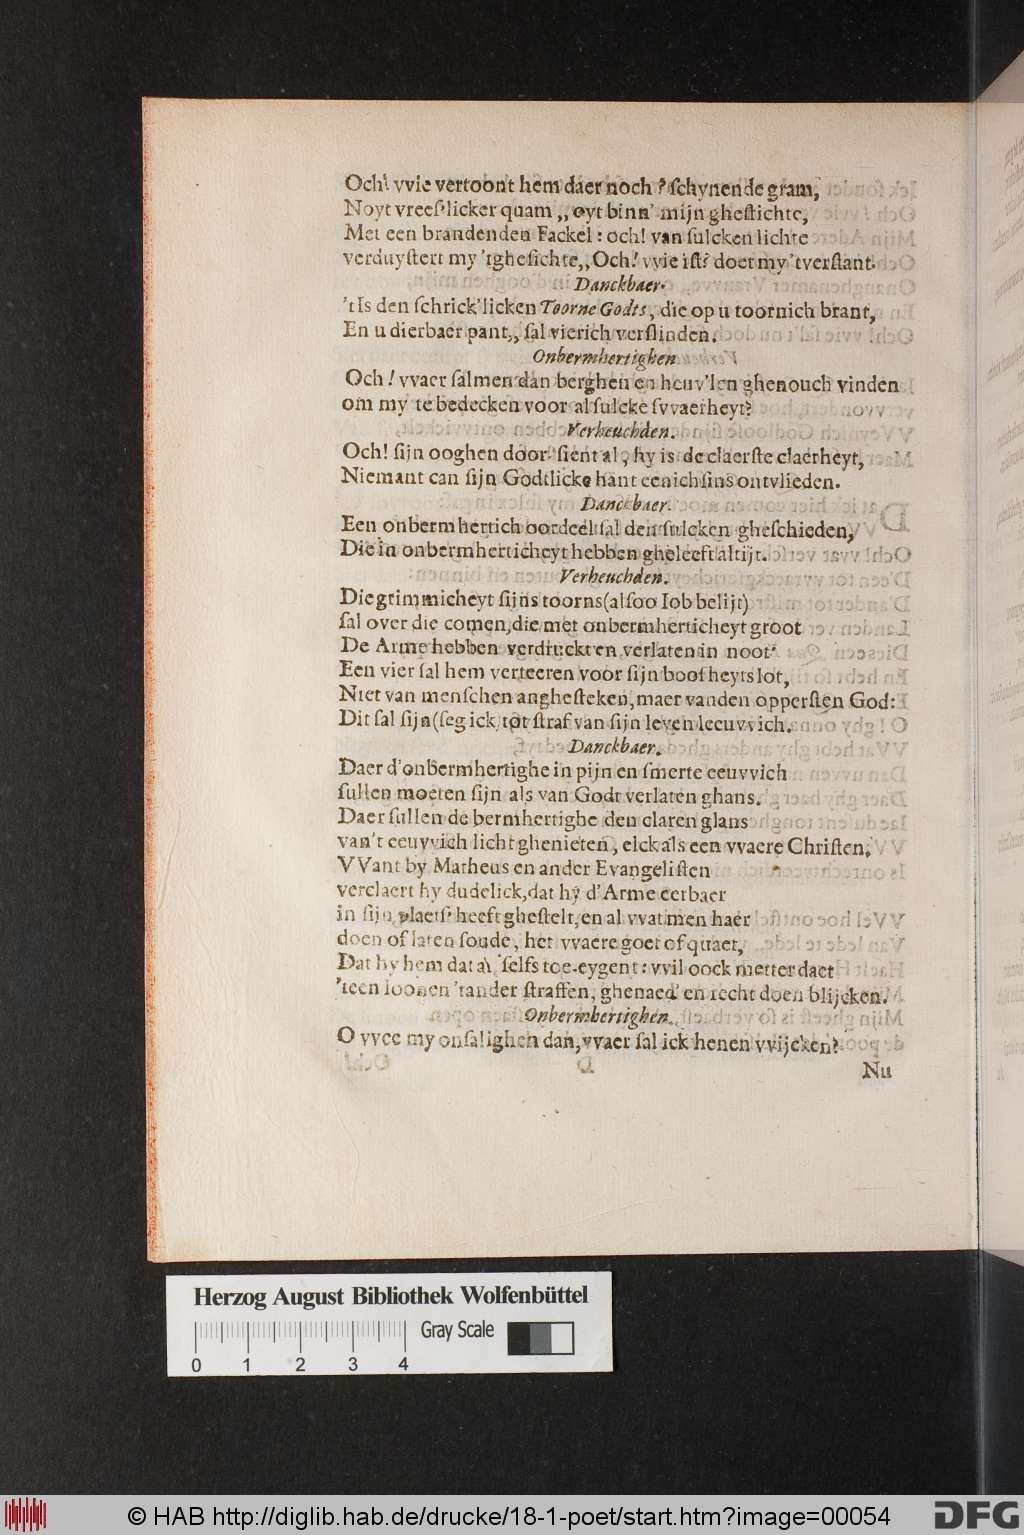 Och! vvie vertoont hem daer noch? ſchynende gram,
Noyt vreeſ'licker quam ,, oyt binn' mijn gheſtichte,
Met een brandenden Fackel : och! van ſulcken lichte
verduyſtert my 'tgheſichte,, Och! vvie iſt? doet my 'tverſtant.
Danckbaer.
't Is den ſchrick'licken Toorne Godts, die op u toornich brant,
En u dierbaer pant,, ſal vierich verſlinden.
Onbermhertighen.
Och! vvaer ſalmen dan berghen en heuv'len ghenouch vinden
om my te bedecken voor al ſulcke ſvvaerheyt?
Verheuchden.
Och! ſijn ooghen door-ſient al, hy is de claerſte claerheyt,
Niemant can ſijn Godtlicke hant eenichſins ontvlieden.
Danckbaer.
Een onbermhertich oordeel ſal den ſulcken gheſchieden,
Die in onbermherticheyt hebben gheleeft altijt.
Verheuchden.
Die grimmicheyt ſijns toorns (alſoo Iob belijt)
ſal over die comen, die met onbermherticheyt groot
De Arme hebben verdruckt en verlaten in noot:
Een vier ſal hem verteeren voor ſijn boosheyts lot,
Niet van menſchen angheſteken, maer vanden opperſten God:
Dit ſal ſijn (ſeg ick) tot ſtraf van ſijn leven leeuvvich.
Danckbaer.
Daer d'onbermhertighe in pijn en ſmerte eeuvvich
ſullen moeten ſijn als van Godt verlaten ghans.
Daer ſullen de bermhertighe den claren glans
van't eeuvvich licht ghenieten, elck als een vvaere Chriſten,
VVant by Matheus en ander Evangeliſten
verclaert hy dudelick, dat hy d'Arme eerbaer
in ſijn plaetſ' heeft gheſtelt, en al vvatmen haer
doen of laten ſoude, het vvaere goet of quaet,
Dat hy hem dat al ſelfs toe-eygent : vvil oock metter daet
'teen loonen 'tander ſtraffen, ghenaed' en recht doen blijcken.
Onbermhertighen.
O vvee my onſalighen dan, vvaer ſal ick henen vvijcken?
Nu
Herzog August Bibliothek Wolfenbüttel
Gray Scale
0 1 2 3 4
© HAB http://diglib.hab.de/drucke/18-1-poet/start.htm?image=00054
DFG